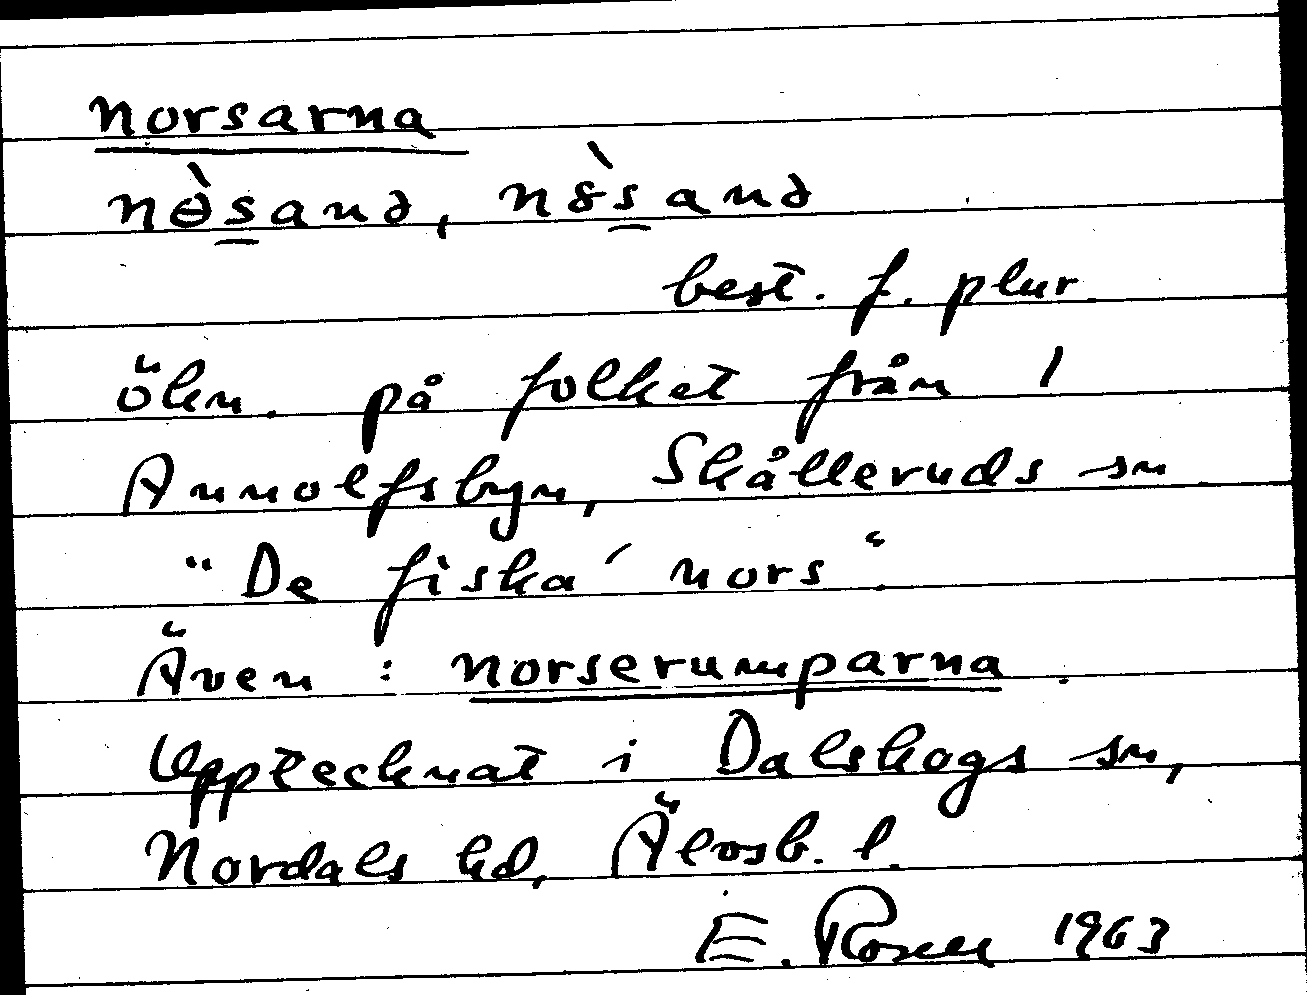 norsarna
nɵ̀s̲anə, nȣ̀s̲anə
best. f. plur.
ökn. på folket från /
Annolfsbyn, Skålleruds sn
"De fiska´ nors".
Även : norserumparna.
Upptecknat i Dalskogs sn,
Nordals hd, Älvsb. l.
E. Rosell 1963